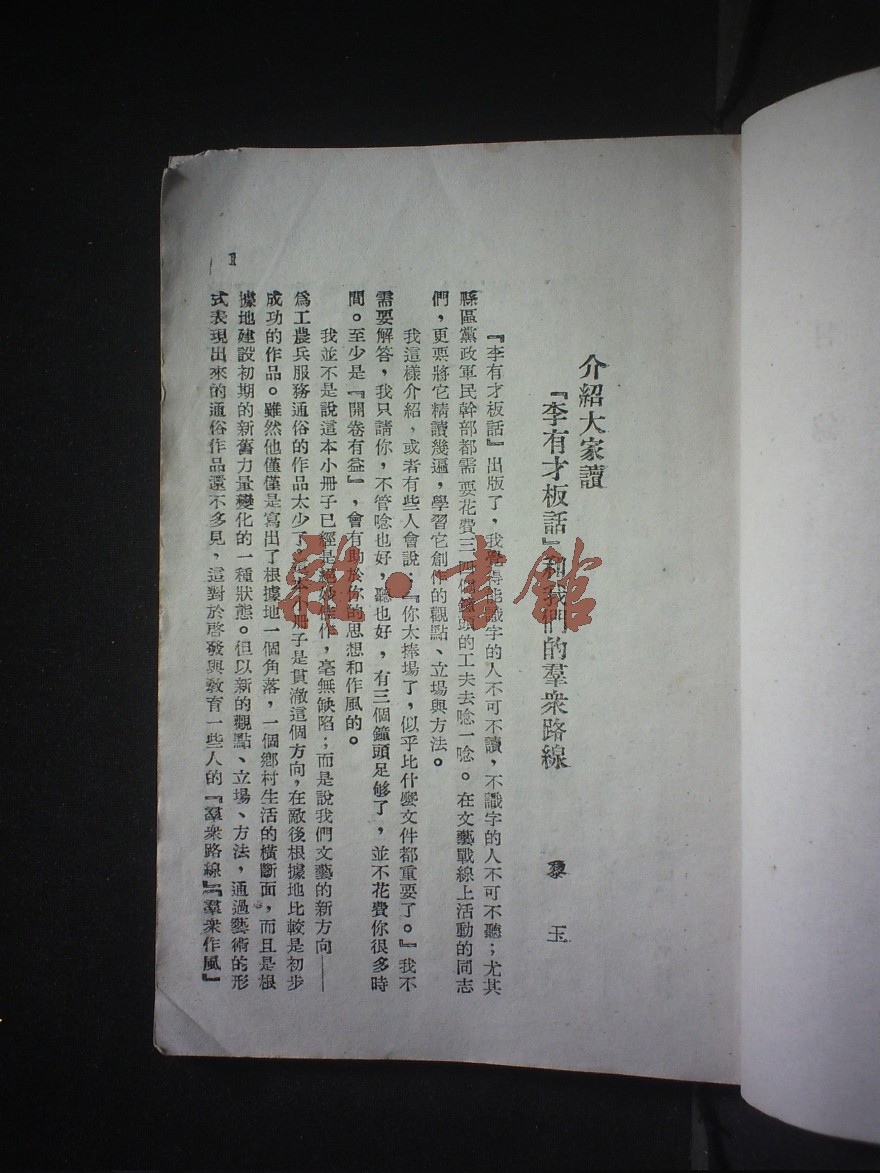 介紹大家讀
『李有才板話』和我們的羣衆路線
黎 玉
『李有才板話』出版了，我覺得能識字的人不可不讀，不識字的人不可不聽；尤其
縣區黨政軍民幹部都需要花費三個鐘頭的工夫去唸一唸。在文藝戰線上活動的同志
們，更要將它精讀幾遍，學習它創作的觀點、立場與方法。
我這樣介紹，或者有些人會說：『你太捧場了，似乎比什麼文件都重要了。』我不
需要解答，我只請你，不管唸也好，聽也好，有三個鐘頭足够了，並不花費你很多時
間。至少是『開卷有益』，會有助於你的思想和作風的。
我並不是說這本小冊子已經是絕妙佳作，毫無缺陷；而是說我們文藝的新方向——
爲工農兵服務通俗的作品太少了，這本小冊子是貫澈這個方向，在敵後根據地比較是初步
成功的作品。雖然他僅僅是寫出了根據地一個角落，一個鄉村生活的橫斷面，而且是根
據地建設初期的新舊力量變化的一種狀態。但以新的觀點、立場、方法，通過藝術的形
式表現出來的通俗作品還不多見，這對於啓發與教育一些人的『羣衆路線』『羣衆作風』
1
雜·書館